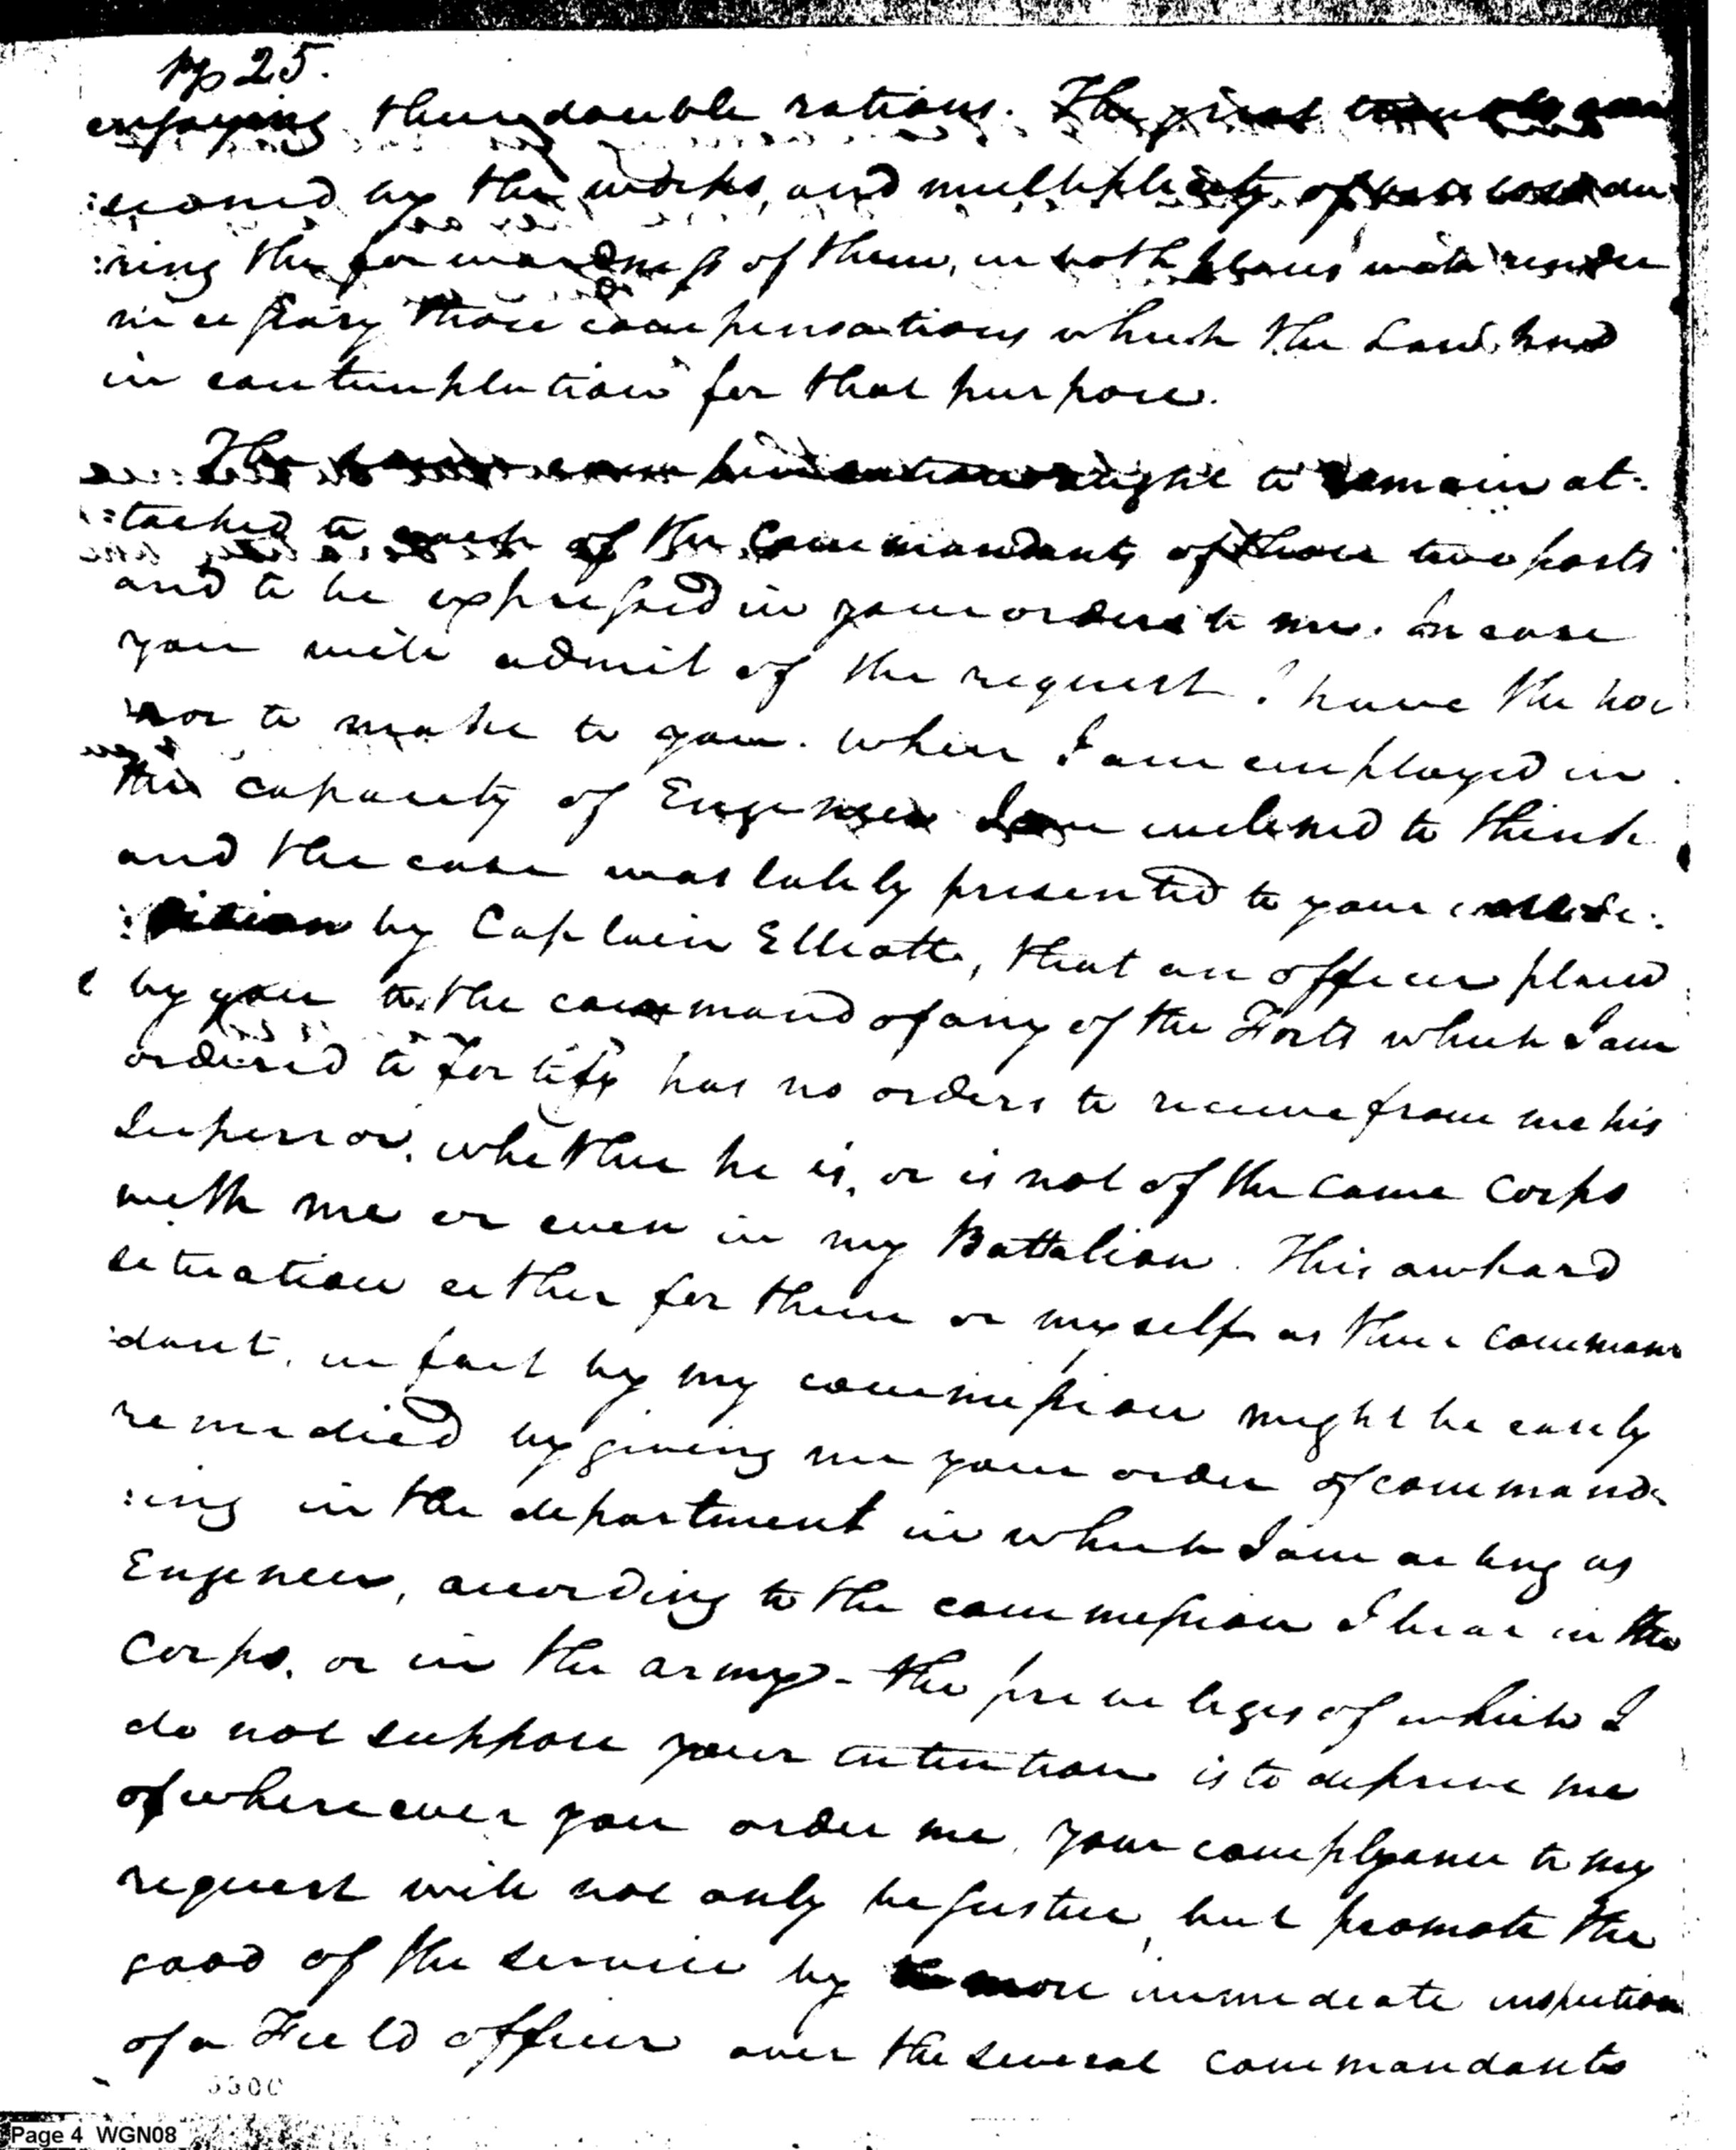 pg 25.
enjoying their double rations. The great trouble occa
:sioned by the works, and multiplicity of business du
:ring the forwardness of them, in both places will render
necessary those compensations which the Law had
in contemplation for that purpose.
The same compensations ought to remain at:
:tached to each of the Commandants of those two posts
and to be expressed in your orders to me. In case
you will admit of the request I have the ho
nor to make to you. When I am employed in
the capacity of Engeneer I am inclined to think
and the case was lately presented to your
by Captain Elliott, that an officer placed
by you to the command of any of the Forts which I am
ordered to fortify has no orders to receive from me his
Superior, whether he is, or is not of the same Corps
with me or even in my Battalion. This awkard
situation either for them or myself as their comman
:dant, in fact by my commission might be easely
remedied by giving me your order of command:
:ing in the department in which I am acting as
Engeneer, according to the commission I bear in the
Corps, or in the army - the previleges of which I
do not suppose your intention is to deprive me
of where ever you order me, your complyance to my
request will not only be justice, but promote the
good of the service by more immediate inspection
of a Field officer over the several commandants
5500
Page 4 WGN08